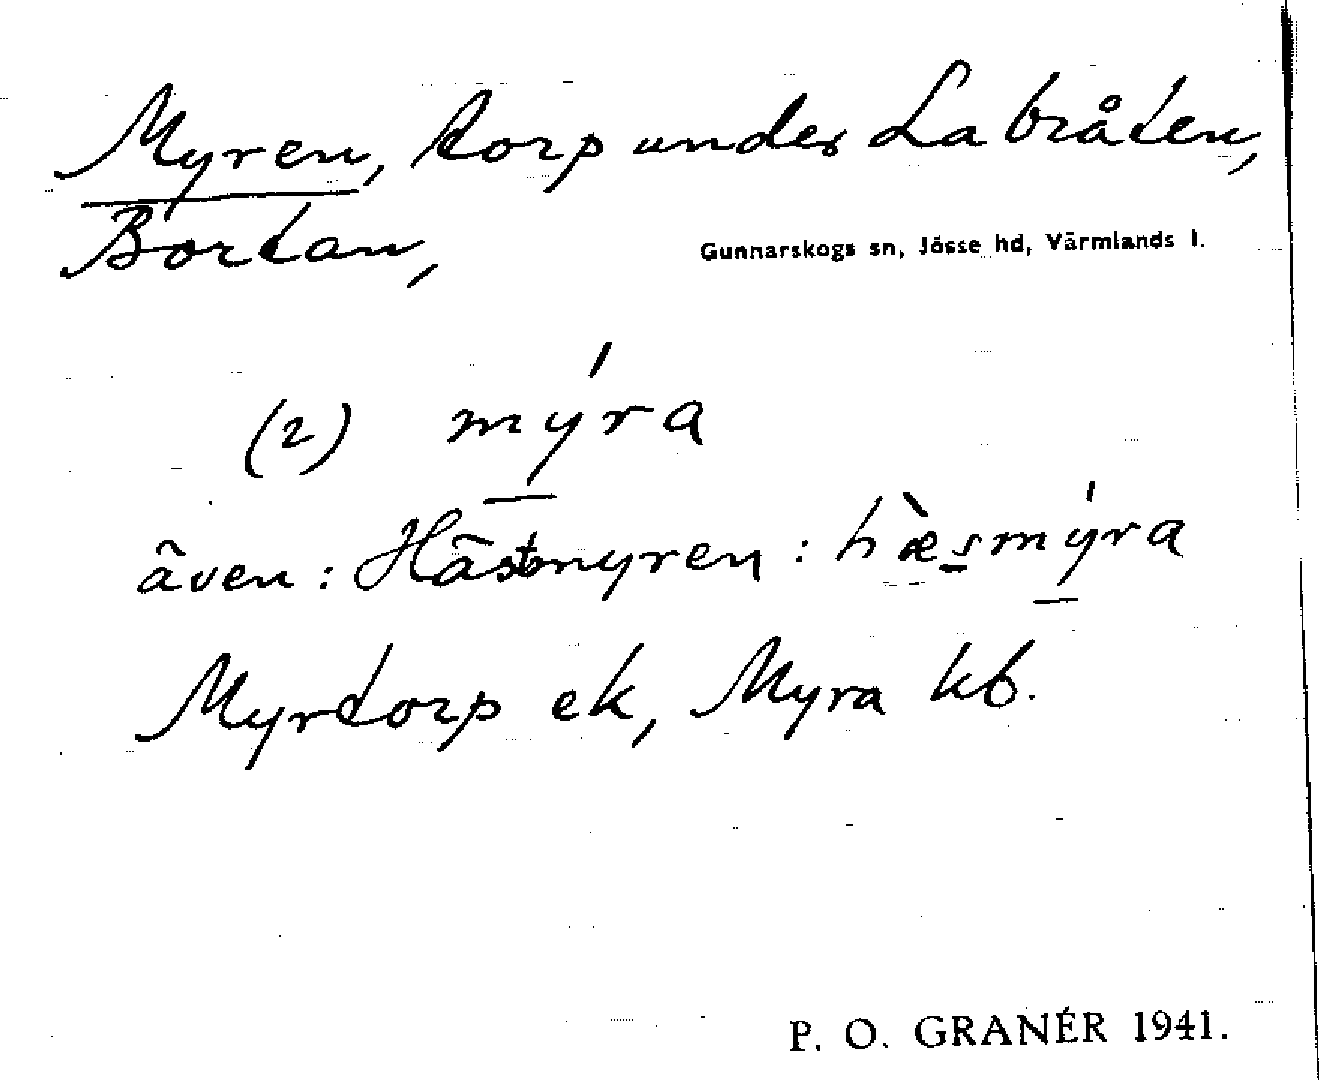 Myren, torp under La bråten,
Bortan,
Gunnarskogs sn, Jösse hd, Värmlands l.
(2) mýra
även: Hästmyren: hæ̀smýra
Myrtorp ek, Myra kb.
P. O. GRANÉR 1941.